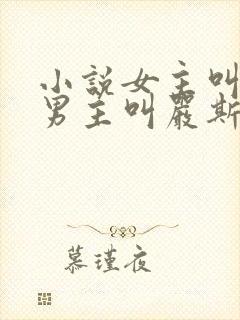 小說女主叫
男主叫嚴斯
慕瑾夜